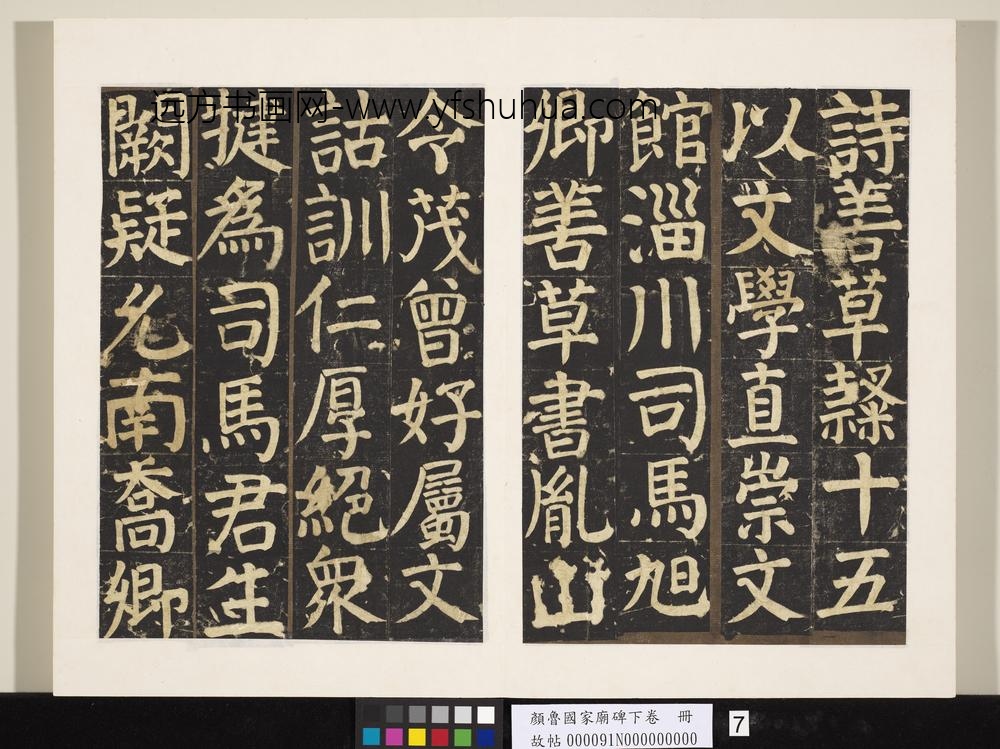 詩善草隸十五
以文學直崇文
館淄川司馬旭
卿善草書胤山
令茂曾好屬文
詁訓仁厚絕衆
揵為司馬君生
闕疑允南喬卿
远方书画网-www.yfshuhua.com
顏魯國家廟碑下卷 冊
故帖 000091N000000000
7